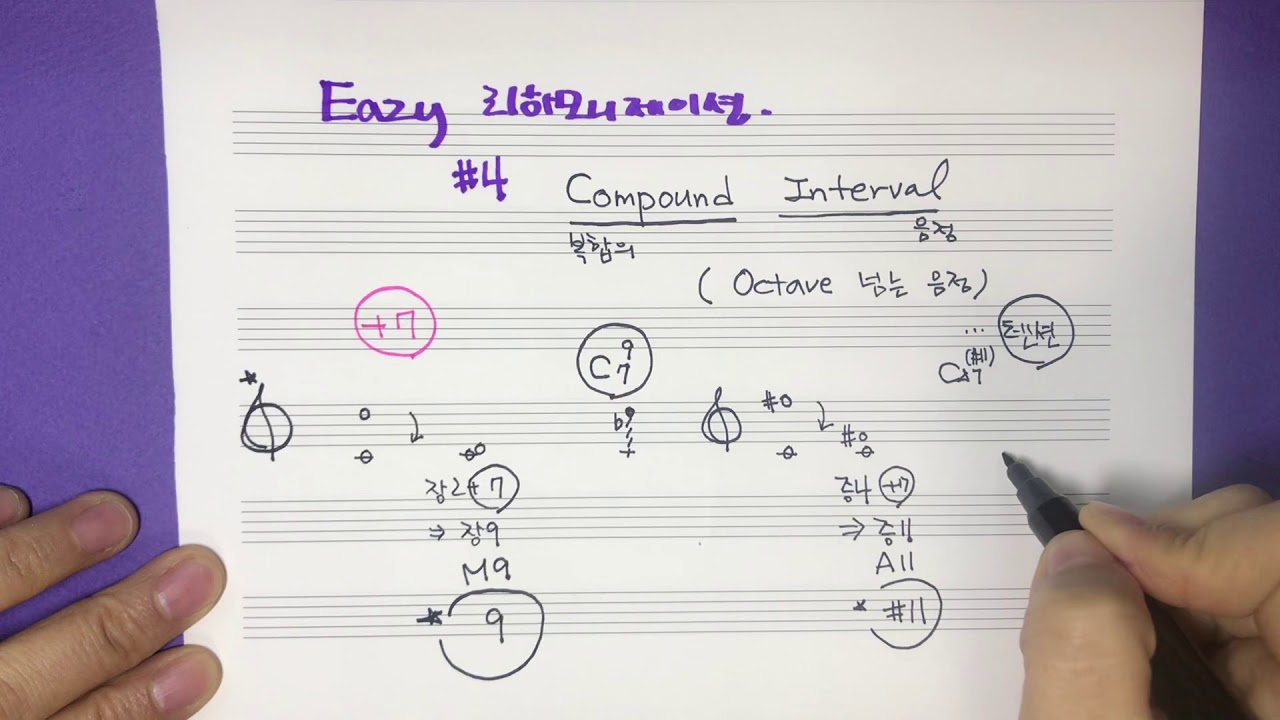 Eazy 리하모니제이션.
#4 Compound Interval
복합의 음정
( Octave 넘는 음정)
+7
C 9 7
... 텐션
C7 (#11)
장2 +7
⇒ 장9
M9
9
증4 +7
⇒ 증11
A11
#11